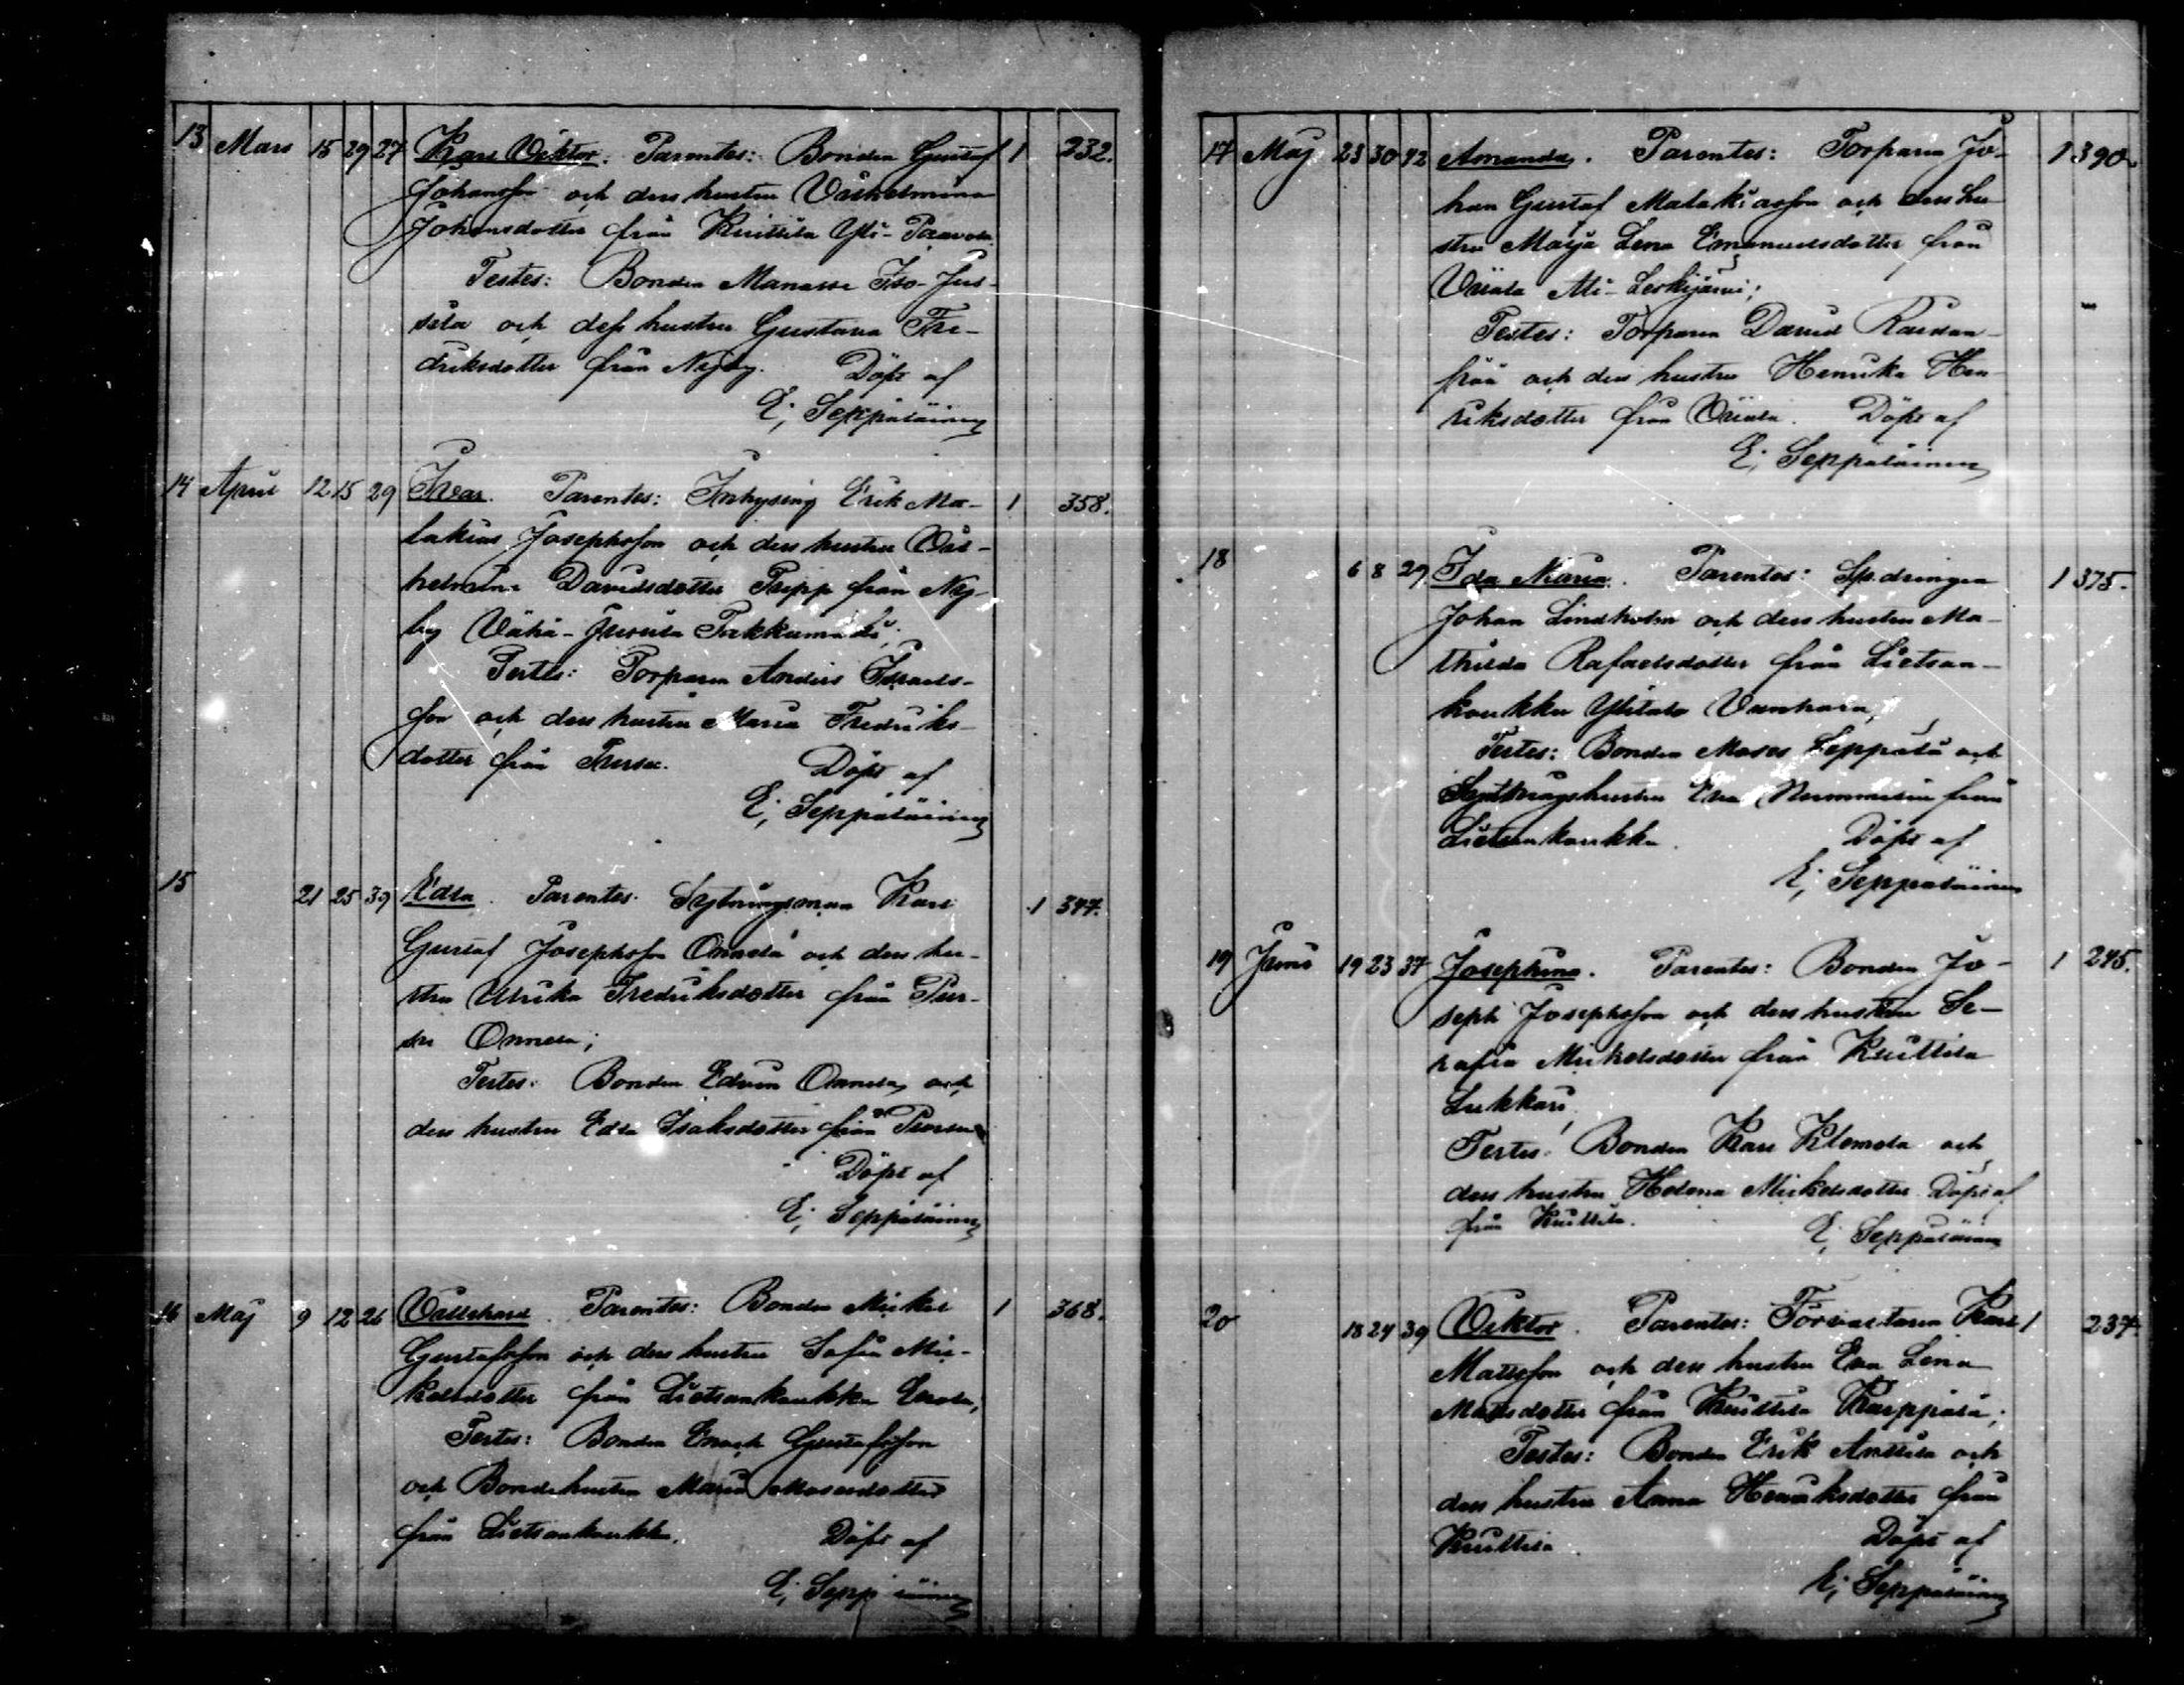 13 Mars 15 29 27 Karl Viktor. Parentes: Bonden Gustaf 1 232.
Johansson och dess hustru Vilhelmina
Johansdotter från Knuttila Yli-Paavola.
Testes: Bonden Manasse Iso-Jus-
sila och dess hustru Gustava Fre-
driksdotter från Nyby. Döpt af
E; Seppäläinen
14 April 12 15 29 Ivar. Parentes: Inhysing Erik Ma- 1 358.
lakias Josephsson och dess hustru Vil-
helmina Davidsdotter Pripp från Ny-
by Vähä-Jussila
Testes: Torparen Anders Israels-
son och dess hustru Maria Fredriks-
dotter från Pursu. Döpt af
E; Seppäläinen
15 21 25 39 Edla. Parentes: Sytningsman Karl 1 347.
Gustaf Josephsson Onnela och dess hu-
stru Ulrika Fredriksdotter från Pur-
su Onnela;
Testes: Bonden Edvin Onnela och
dess hustru Edla Isaksdotter från Pursu
Döpt af
E; Seppäläinen
16 Maj 9 12 26 Parentes: Bonden Mickel 1 368.
Gustafsson och dess hustru Sofia Mic-
kelsdotter från Lietsankoukku
Testes: Bonden Enock Gustafsson
och Bondehustrun Maria Mosesdotter
från Lietsankoukku. Döpt af
E;
17 Maj 23 30 42 Amanda. Parentes: Torparen Jo- 1 390.
han Gustaf Malakiasson och dess hu-
stru Maija Lena Emanuelsdotter från
Testes: Torparen David
och dess hustru Henrika Hen-
riksdotter från Döpt af
E; Seppäläinen
18 6 8 29 Ida Maria. Parentes: Sp.drängen 1 375.
Johan Lindholm och dess hustru Ma-
thilda Rafaelsdotter från Lietsan-
koukku Ylitalo
Testes: Bonden Moses Leppälä och
Sytningshustrun Eva från
Lietsankoukku. Döpt af
E; Seppäläinen
19 Juni 19 23 37 Josephina. Parentes: Bonden Jo- 1 245.
seph Josephsson och dess hustru Se-
rafia Mickelsdotter från Knuttila
Lukkari;
Testes: Bonden Karl Klemola och
dess hustru Helena Mickelsdotter Döpt af
från Knuttila. E; Seppäläinen
20 18 24 39 Viktor. Parentes: Förvaltaren Karl 1 237.
Mattsson och dess hustru Eva Lena
Matsdotter från Knuttila Karppala;
Testes: Bonden Erik Anttila och
dess hustru Anna Henriksdotter från
Knuttila. Döpt af
E; Seppäläinen